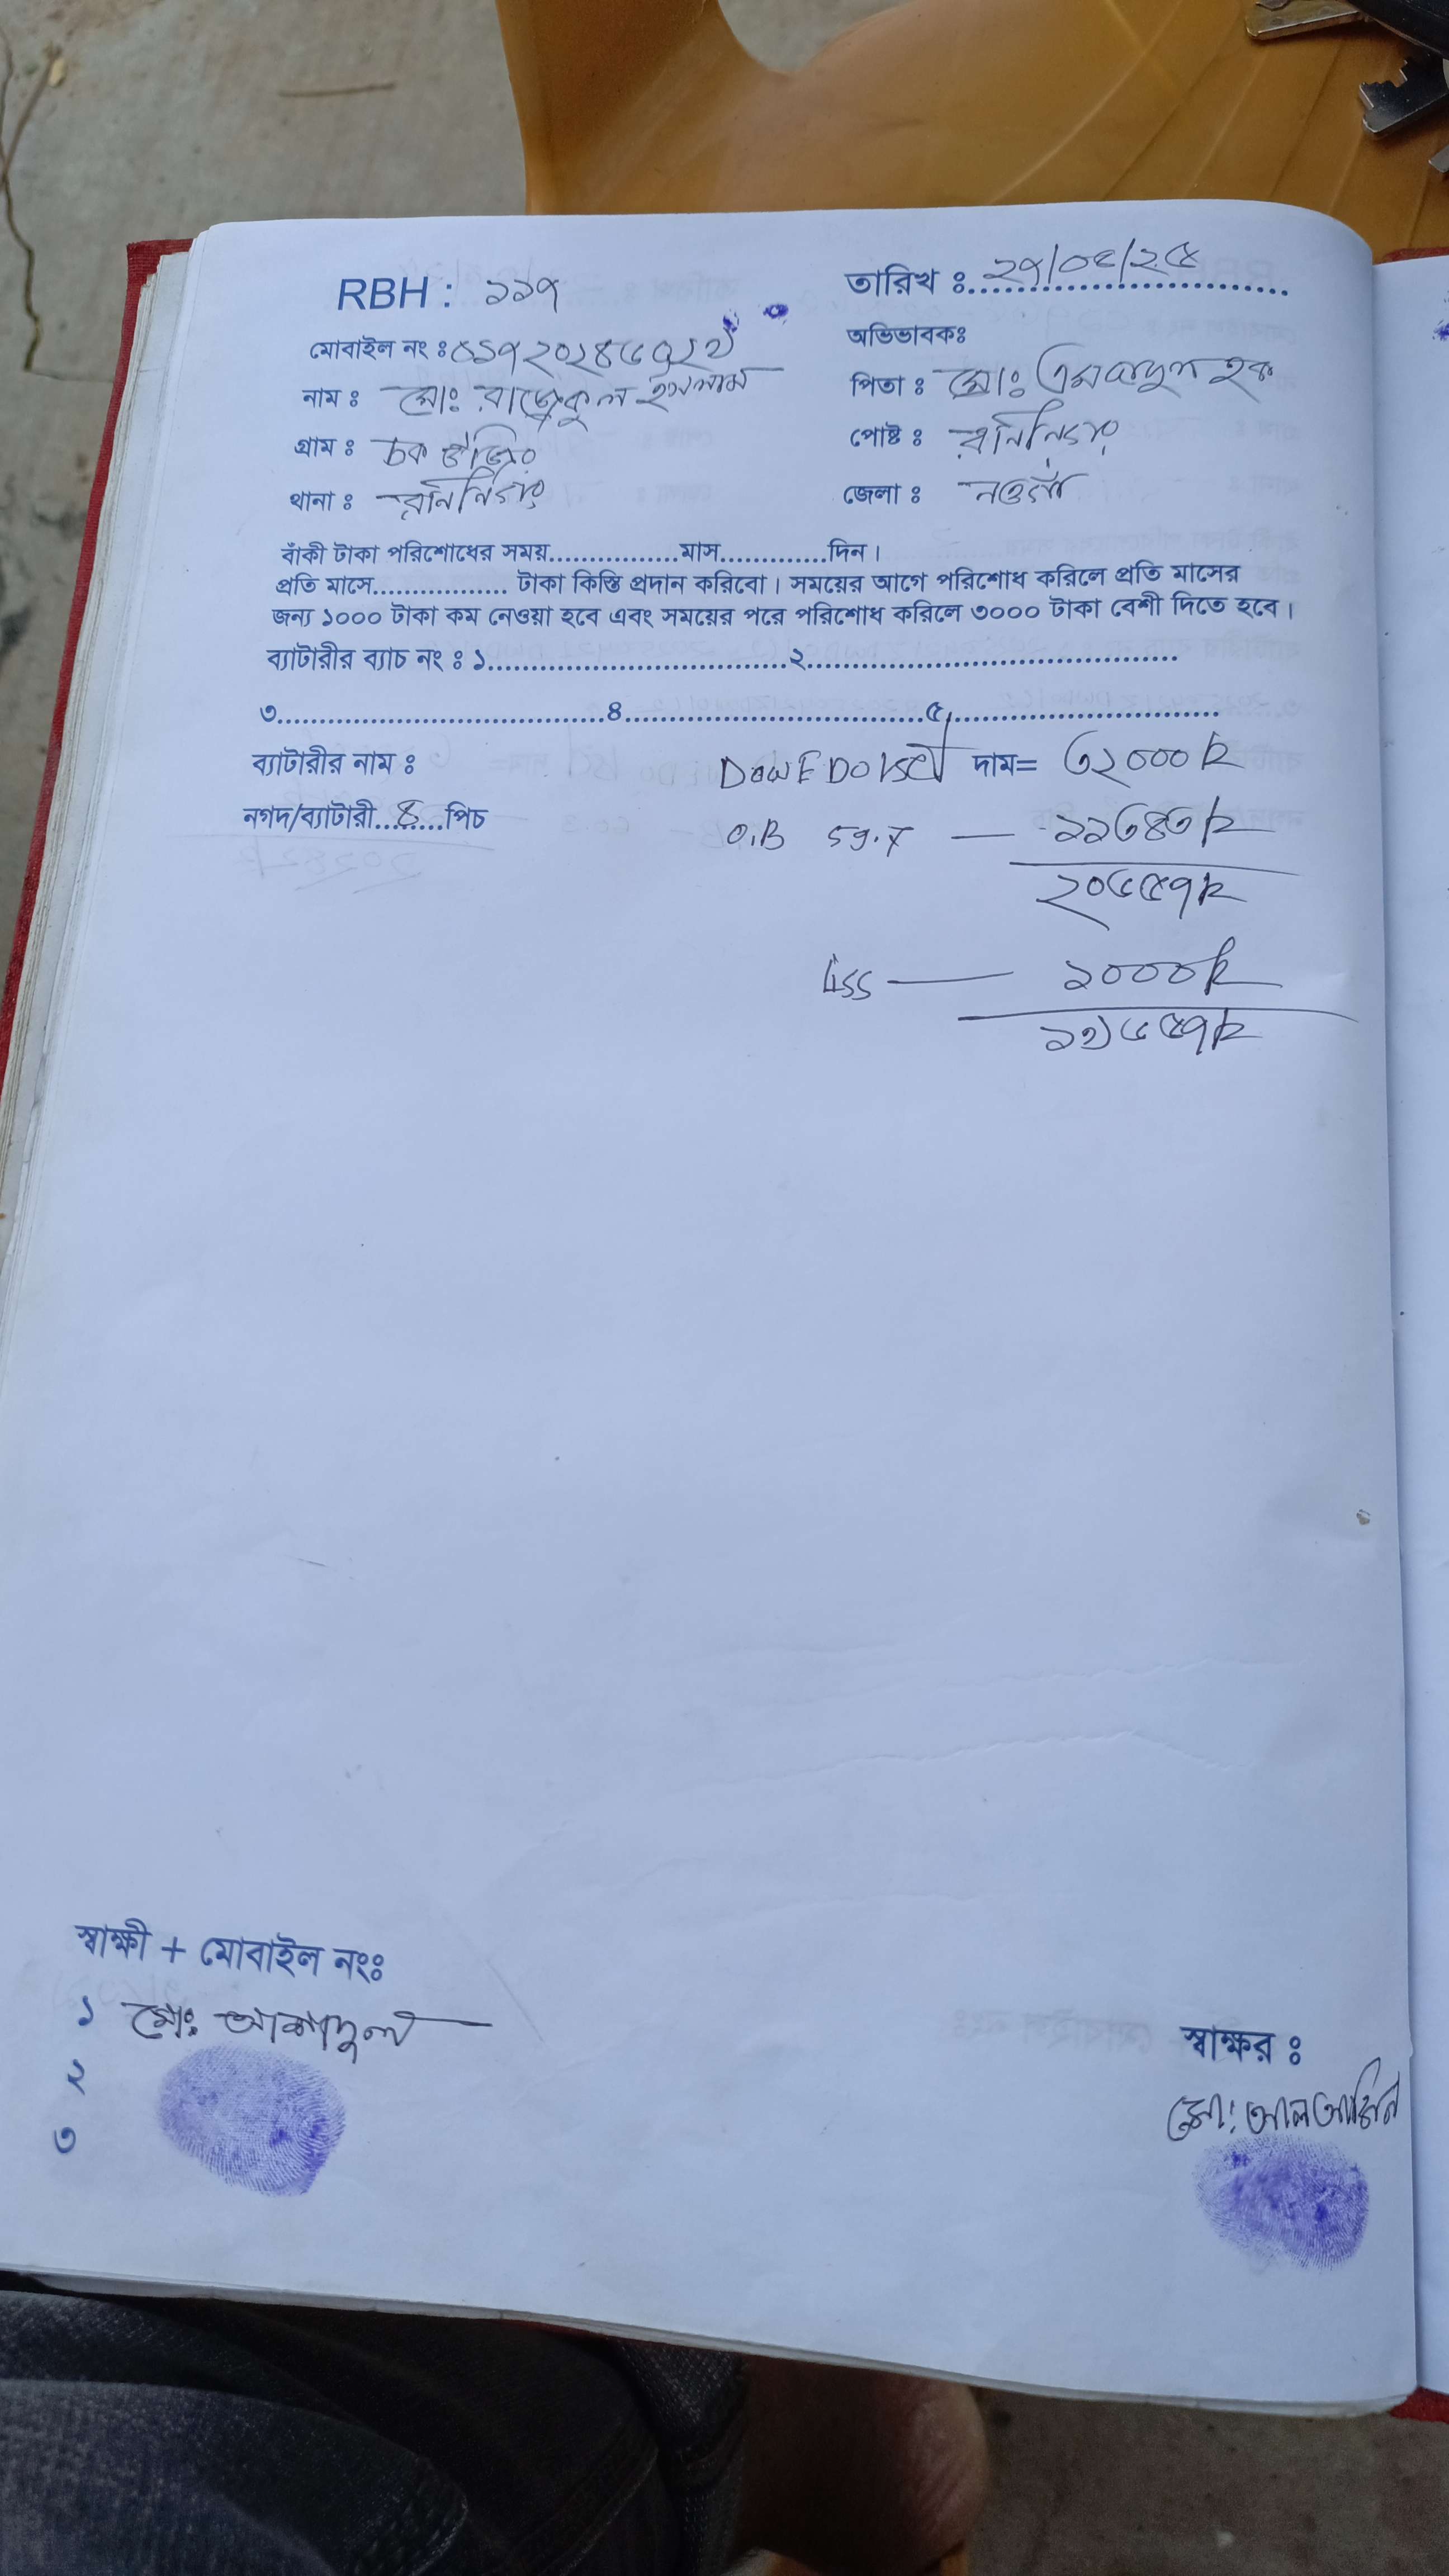 RBH : ১১৭
তারিখ ঃ ২৭/০৬/২৫
মোবাইল নং ঃ
অভিভাবকঃ
নাম ঃ মোঃ রাজেকুল ইসলাম
পিতা ঃ মোঃ এমদাদুল হক
গ্রাম ঃ চক
পোষ্ট ঃ রানিনগর
থানা ঃ রানিনগর
জেলা ঃ নওগাঁ
বাঁকী টাকা পরিশোধের সময়................মাস.............দিন।
প্রতি মাসে................. টাকা কিস্তি প্রদান করিবো। সময়ের আগে পরিশোধ করিলে প্রতি মাসের
জন্য ১০০০ টাকা কম নেওয়া হবে এবং সময়ের পরে পরিশোধ করিলে ৩০০০ টাকা বেশী দিতে হবে।
ব্যাটারীর ব্যাচ নং ঃ ১.....................................২..............................................
৩........................................৪.....................................৫.................................
ব্যাটারীর নাম ঃ দাম= ৩২০০০
নগদ/ব্যাটারী..৪..পিচ
O.B ১১৩৪৩
২০৬৫৭
Liss ১০০০
১৯৬৫৭
স্বাক্ষী + মোবাইল নংঃ
১ মোঃ
২
৩
স্বাক্ষর ঃ
মো: আল আমিন